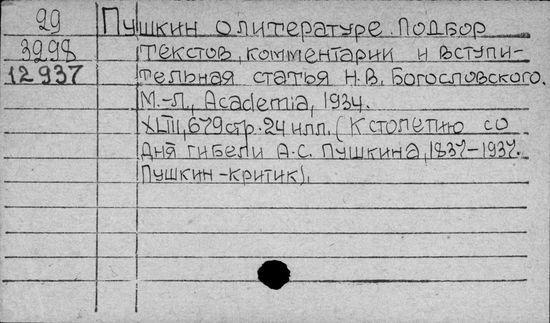 29 Пушкин о литературе. Подбор
3298 текстов, комментарии и вступи-
12937 тельная статья Н.В. Богословского.
М.-Л., Academia, 1934.
XLIII, 679 стр. 24 илл. (К столетию со
дня гибели А.С. Пушкина, 1837-1937.
Пушкин-критик).